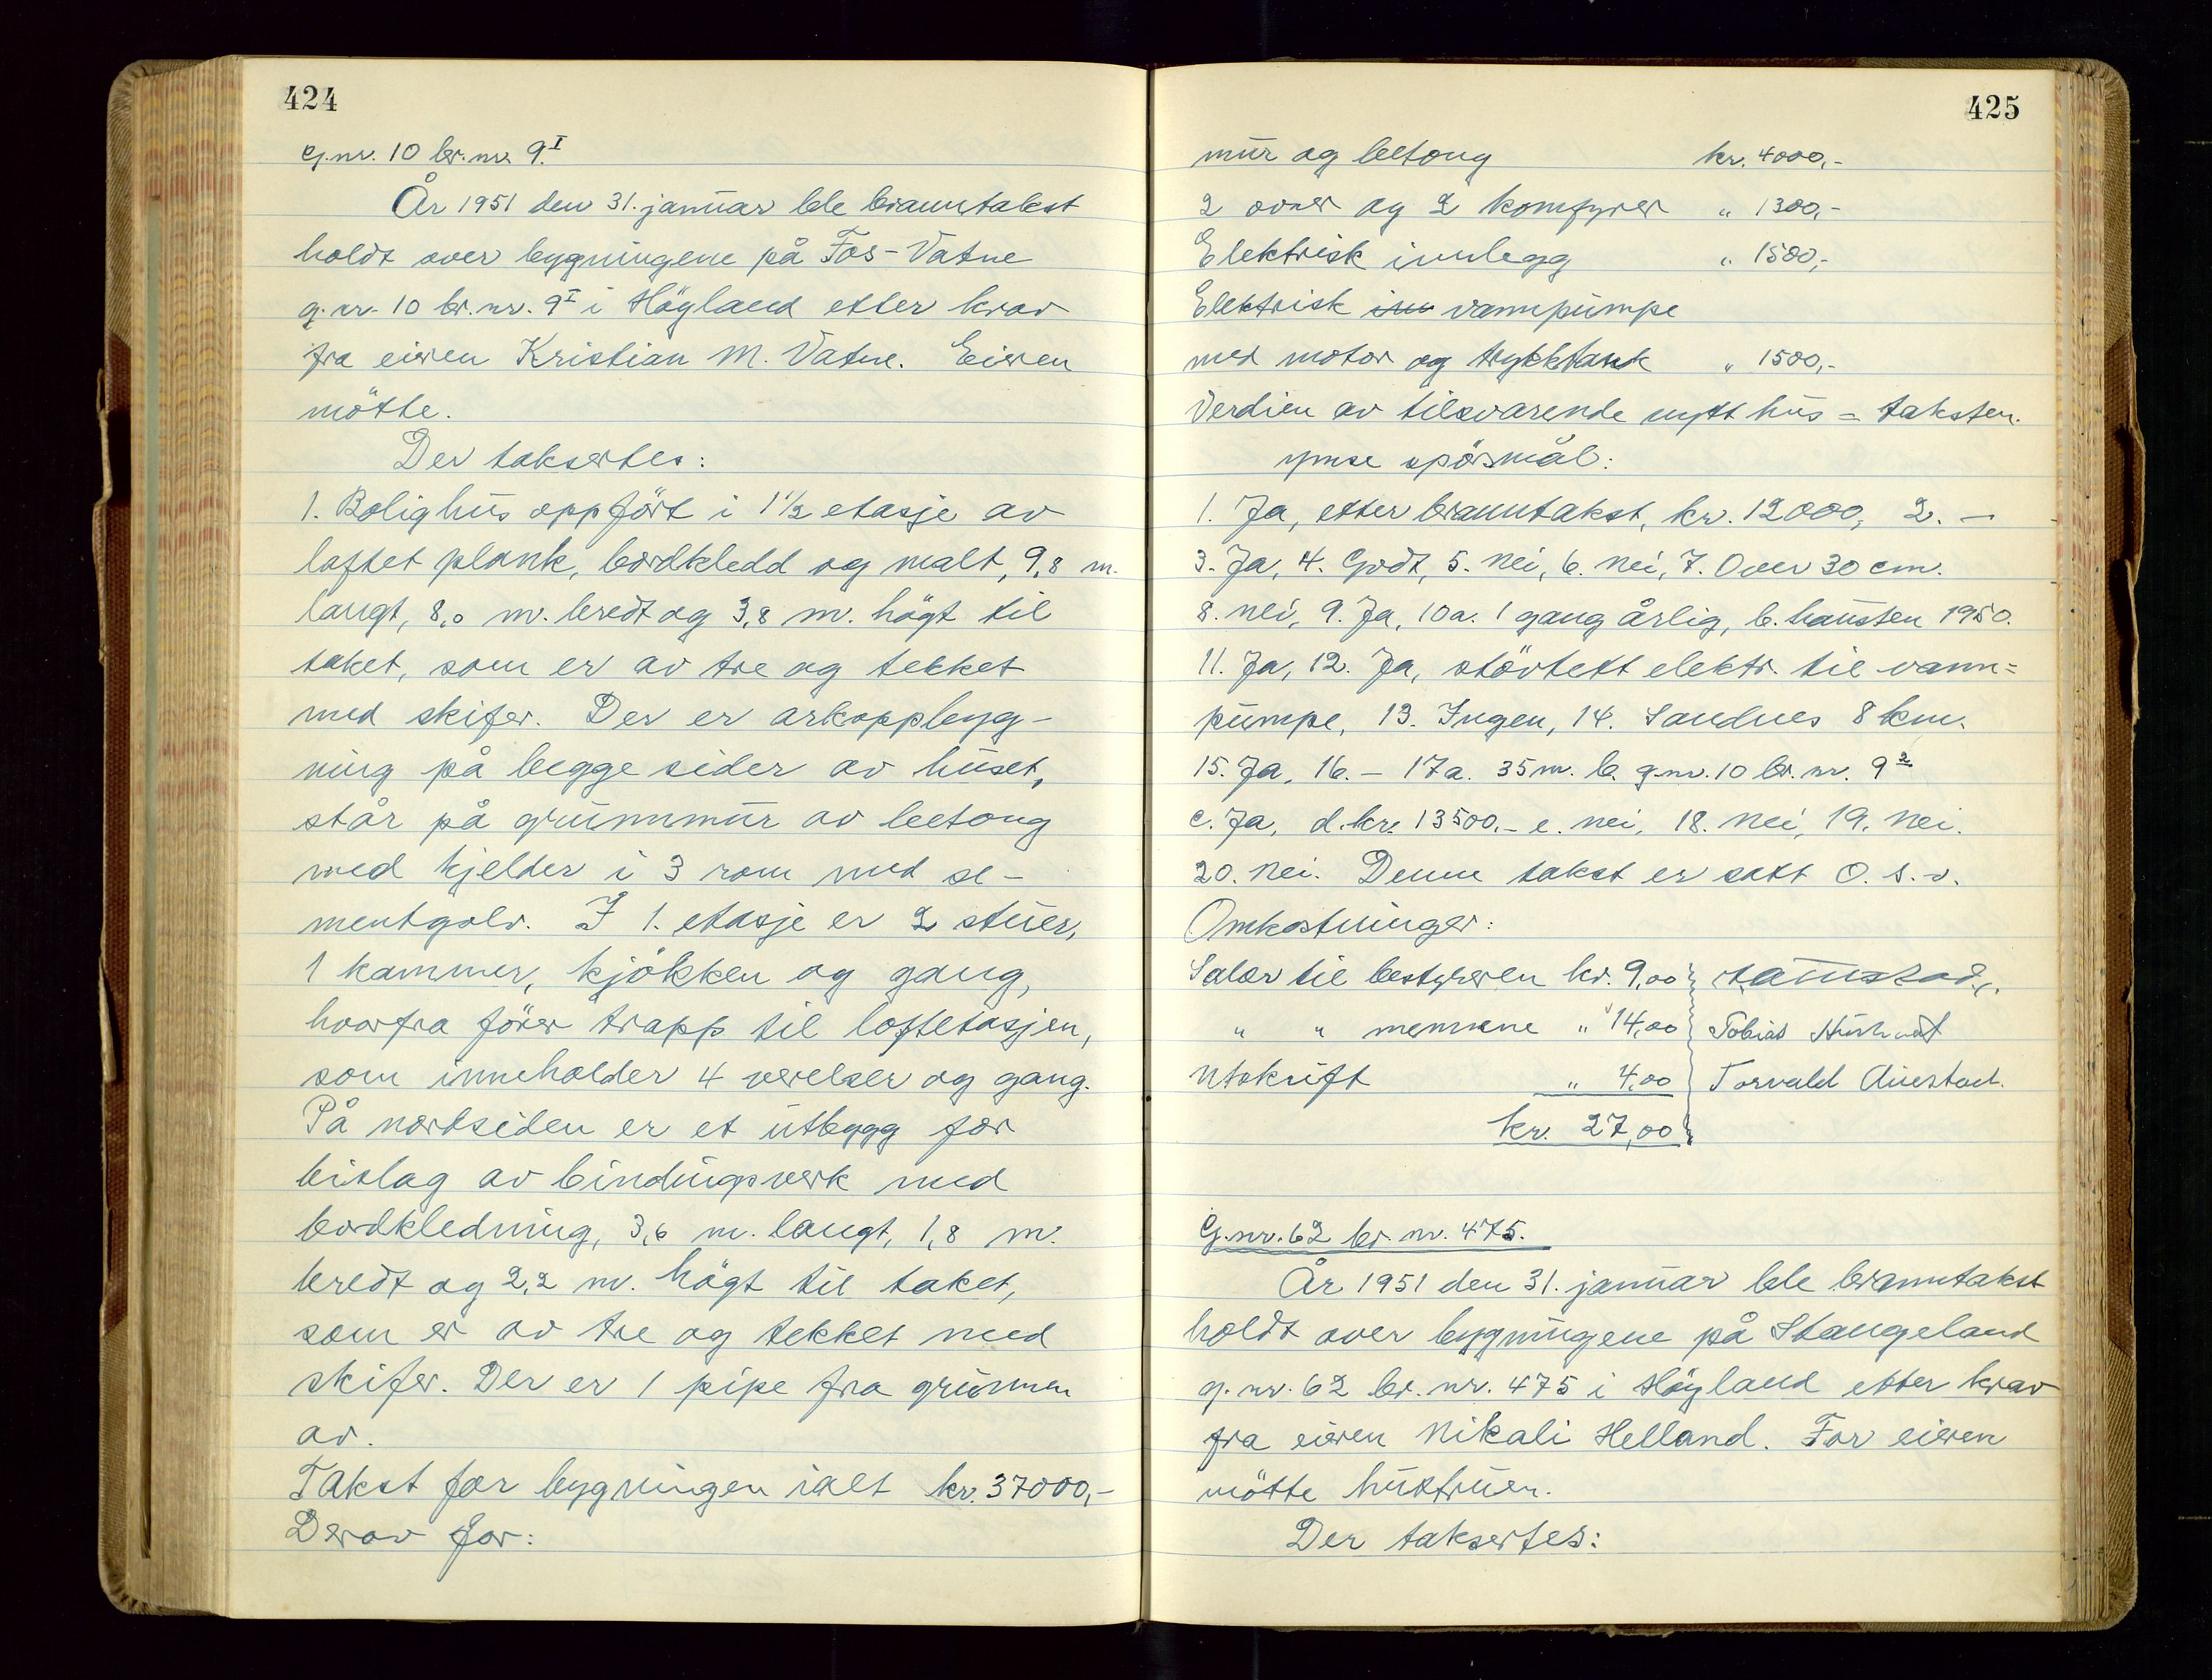 424
g.nr. 10 br.nr. 9.I
År 1951 den 31. januar ble branntakst
holdt over bygningene på Fos-Vatne
g.nr. 10 br.nr. 9I i Högland etter krav
fra eieren Kristian M. Vatne. Eieren
mötte.
Der taksertes:
1. Bolighus oppfört i 1 1/2 etasje av
laftet plank, bordkledd og malt, 9,8 m.
langt, 8,0 m. bredt og 3,8 m. högt til
taket, som er av tre og tekket
med skifer. Der er arkoppbyg-
ning på begge sider av huset,
står på grunnmur av betong
med kjelder i 3 rom med se-
mentgolv. I 1. etasje er 2 stuer,
1 kammer, kjökken og gang,
hvorfra förer trapp til loftetasjen,
som inneholder 4 værelser og gang.
På nordsiden er et utbygg for
bislag av bindingsverk med
bordkledning, 3,6 m. langt, 1,8 m.
bredt og 2,2 m. högt til taket,
som er av tre og tekket med
skifer. Der er 1 pipe fra grunnen
av.
Takst for bygningen ialt kr. 37000,-
Derav for:
425
mur og betong kr. 4000,-
2 ovner og 2 komfyrer " 1300,-
Elektrisk innlegg " 1500,-
Elektrisk inn vannpumpe
med motor og trykktank " 1500,-
Verdien av tilsvarende nytt hus = taksten.
ymse spörsmål:
1. Ja, etter branntakst, kr. 12000, 2. -
3. Ja, 4. Godt, 5. nei, 6. nei, 7. Over 30 cm.
8. nei, 9. Ja, 10a. 1 gang årlig, b. hausten 1950.
11. Ja, 12. Ja, stövtett elektr. til vann=
pumpe, 13. Ingen, 14. Sandnes 8 km.
15. Ja, 16. - 17a. 35 m. b. g.nr. 10 br. nr. 9 2
c. Ja, d. kr. 13500.- e. nei, 18. nei, 19. nei.
20. nei. Denne takst er satt O. s. v.
Omkostninger:
Salær til bestyreren kr. 9,00
" " mennene " 14,00 Tobias
Utskrift " 4,00 Torvald Auestad.
kr. 27,00
G.nr. 62 br. nr. 475.
År 1951 den 31. januar ble branntakst
holdt over bygningene på Stangeland
g.nr. 62 br. nr. 475 i Högland etter krav
fra eieren Nikali Helland. For eieren
mötte hustruen.
Der taksertes: